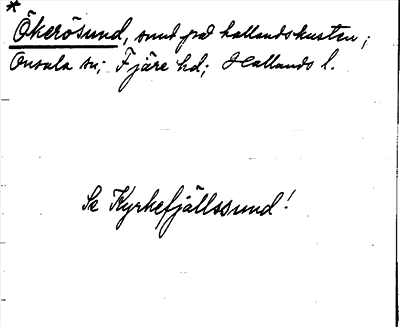 *
Ökerösund, sund på hallandskusten;
Onsala sn; Fjäre hd; Hallands l.
Se Kyrkefjällssund!